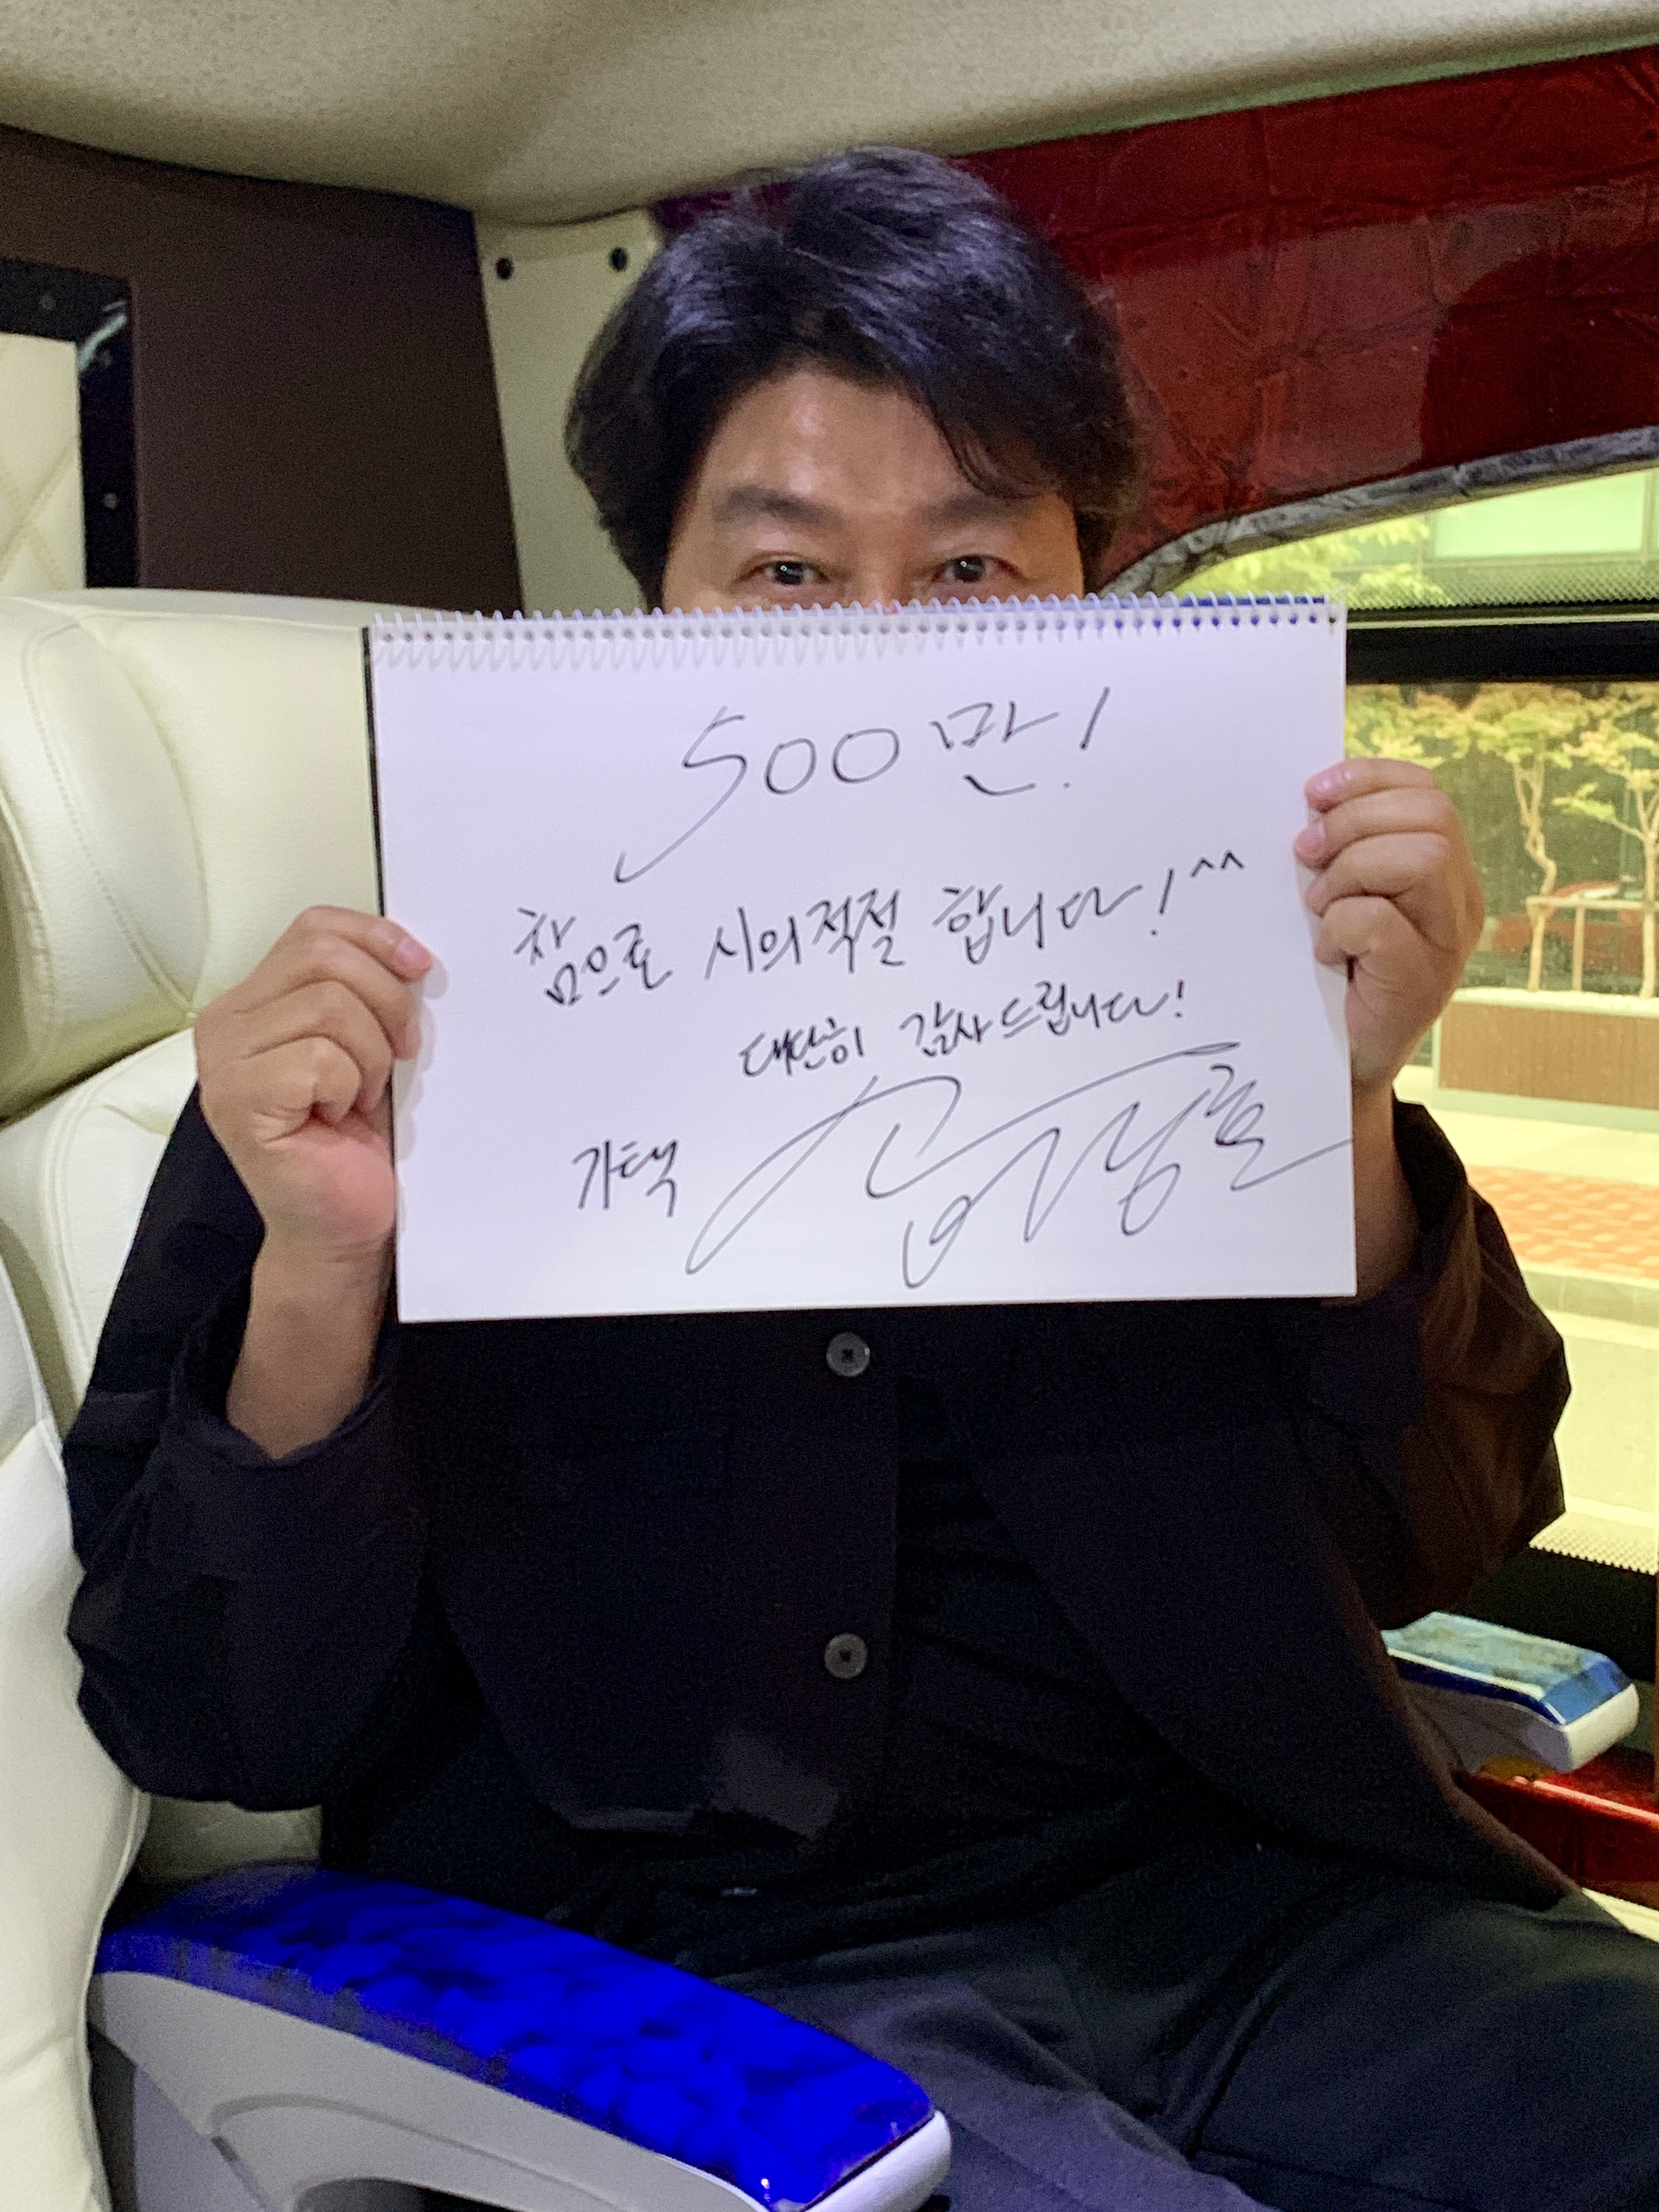 500만!
참으로 시의적절 합니다! ^^
대단히 감사드립니다!
기택